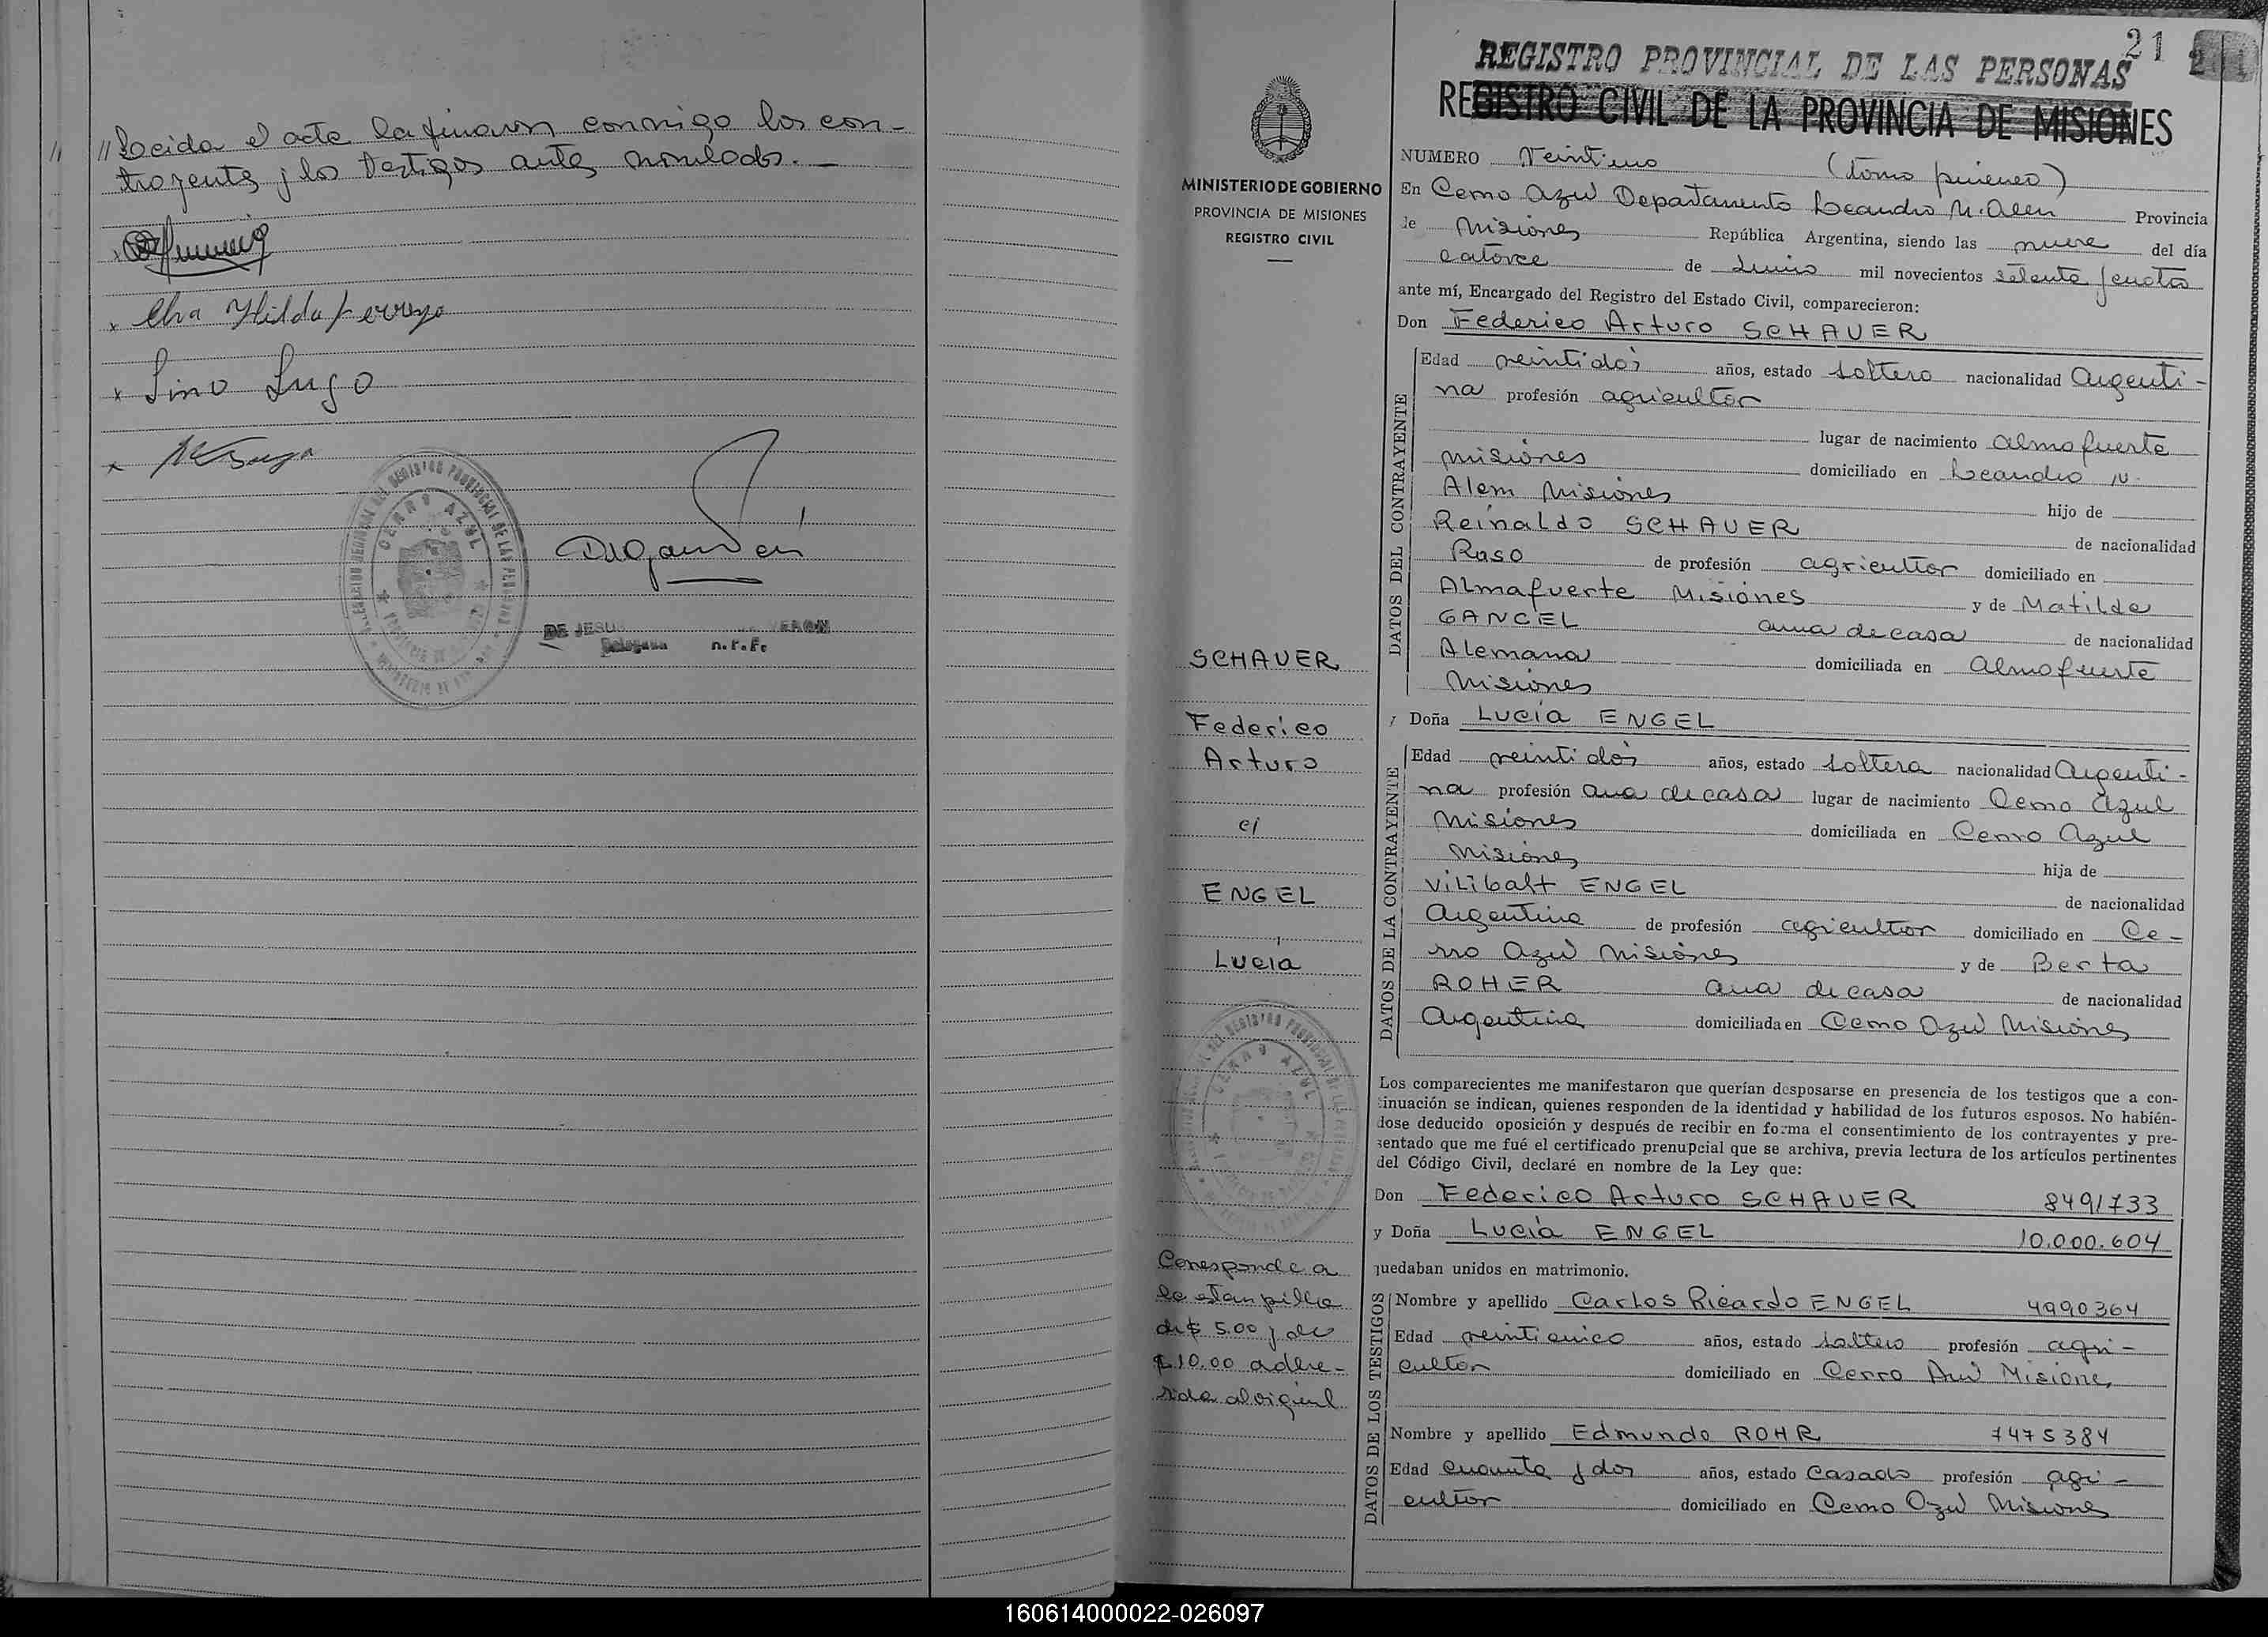 // Leida el acta la firman conmigo los con-
trayentes y los testigos ante nombrados. -
x Elva Hilda Ferreyra
x Lino Lugo
CERRO AZUL
DE JESUS VERON
Delegado n.r.f.
21
REGISTRO PROVINCIAL DE LAS PERSONAS
REGISTRO CIVIL DE LA PROVINCIA DE MISIONES
MINISTERIO DE GOBIERNO
PROVINCIA DE MISIONES
REGISTRO CIVIL
SCHAUER
Federico
Arturo
c/
ENGEL
Lucía
CERRO AZUL
Corresponde a
la estampilla
de $ 5.00 y de
$ 10.00 adhe-
rida al original
NUMERO Veintiuno (tomo primero)
En Cerro Azul Departamento Leandro N. Alem Provincia
de Misiones República Argentina, siendo las nueve del día
catorce de Junio mil novecientos setenta y cuatro
ante mí, Encargado del Registro del Estado Civil, comparecieron:
Don Federico Arturo SCHAUER
DATOS DEL CONTRAYENTE
Edad veintidós años, estado soltero nacionalidad Argenti-
na profesión agricultor
lugar de nacimiento Almafuerte
Misiones domiciliado en Leandro N.
Alem Misiones hijo de
Reinaldo SCHAUER de nacionalidad
Ruso de profesión agricultor domiciliado en
Almafuerte Misiones y de Matilde
GANCEL ama de casa de nacionalidad
Alemana domiciliada en Almafuerte
Misiones
y Doña Lucía ENGEL
DATOS DE LA CONTRAYENTE
Edad veintidós años, estado soltera nacionalidad Argenti-
na profesión ama de casa lugar de nacimiento Cerro Azul
Misiones domiciliada en Cerro Azul
Misiones hija de
Vilibalt ENGEL de nacionalidad
Argentina de profesión agricultor domiciliado en Ce-
rro Azul Misiones y de Berta
ROHER ama de casa de nacionalidad
Argentina domiciliada en Cerro Azul Misiones
Los comparecientes me manifestaron que querían desposarse en presencia de los testigos que a con-
tinuación se indican, quienes responden de la identidad y habilidad de los futuros esposos. No habién-
dose deducido oposición y después de recibir en forma el consentimiento de los contrayentes y pre-
sentado que me fué el certificado prenupcial que se archiva, previa lectura de los artículos pertinentes
del Código Civil, declaré en nombre de la Ley que:
Don Federico Arturo SCHAUER 8491733
y Doña Lucía ENGEL 10.000.604
quedaban unidos en matrimonio.
DATOS DE LOS TESTIGOS
Nombre y apellido Carlos Ricardo ENGEL 4990364
Edad veinticinco años, estado soltero profesión agri-
cultor domiciliado en Cerro Azul Misiones
Nombre y apellido Edmundo ROHR 7475384
Edad cuarenta y dos años, estado Casado profesión agri-
cultor domiciliado en Cerro Azul Misiones
160614000022-026097